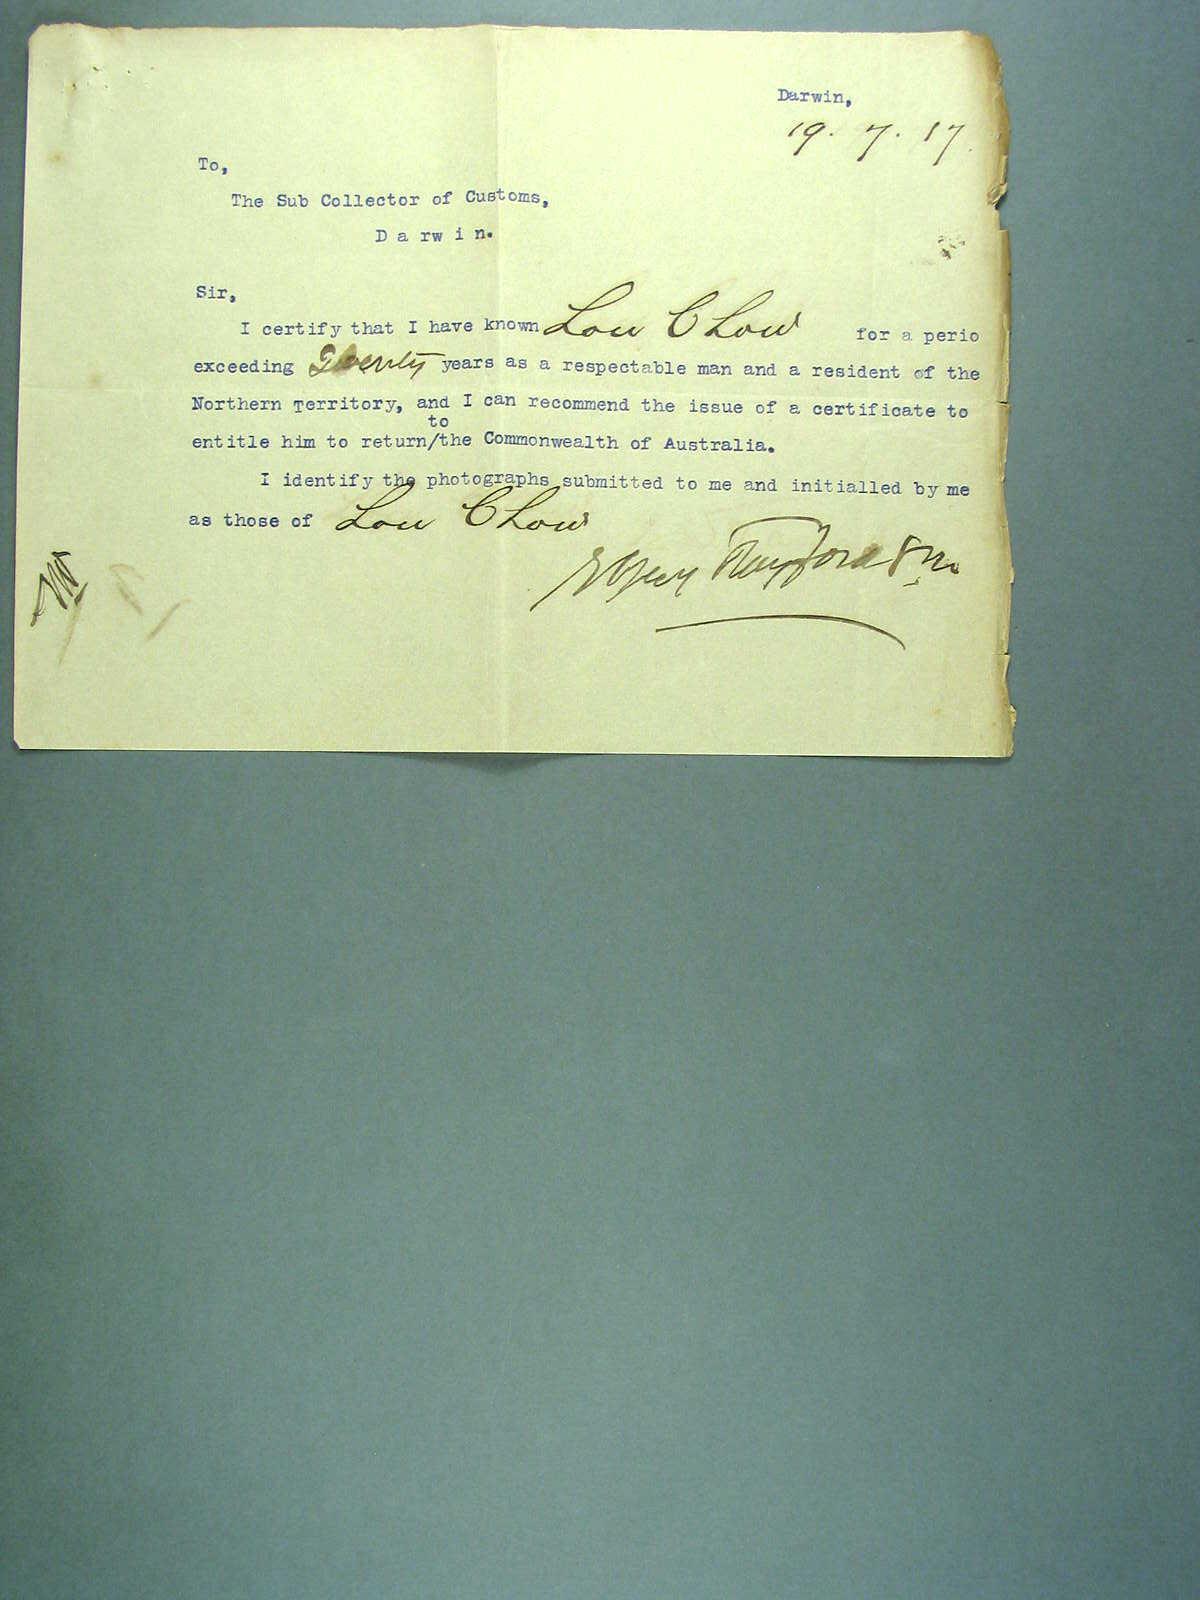 Darwin,
19. 7. 17.
To,
The Sub Collector of Customs,
D a r w i n.
Sir,
I certify that I have known Lou Chow for a perio
exceeding Twenty years as a respectable man and a resident of the
Northern Territory, and I can recommend the issue of a certificate to
to
entitle him to return/the Commonwealth of Australia.
I identify the photographs submitted to me and initialled by me
as those of Lou Chow